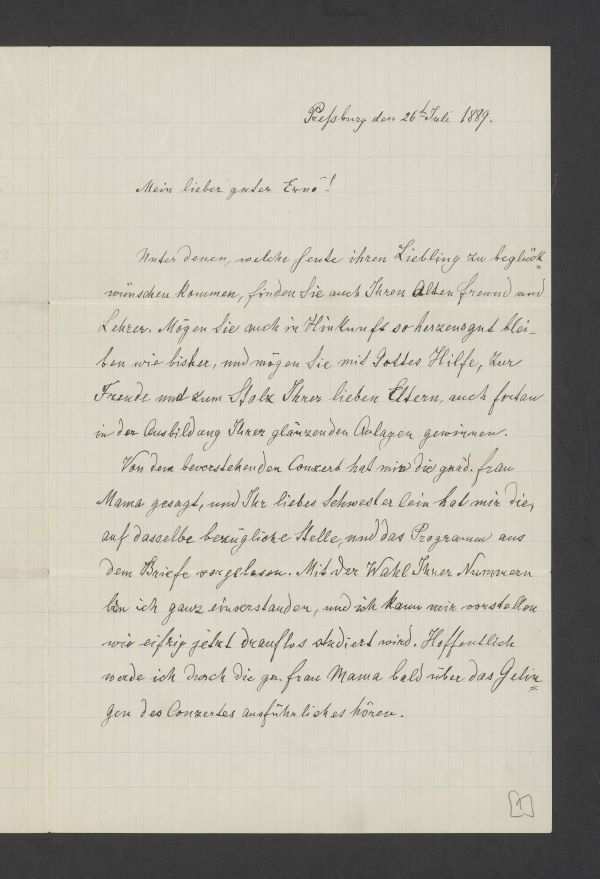 Preßburg den 26t Juli 1889.
Mein lieber guter Ernö!
Unter denen, welche heute ihren Liebling zu beglück=
wünschen kommen, finden Sie auch Ihren Alten freund und
Lehrer. Mögen Sie auch in Hinkunft so herzensgut blei-
ben wie bisher, und mögen Sie mit Gottes Hilfe, zur
Freude und zum Stolz Ihrer lieben Eltern, auch fortan
in der Ausbildung Ihrer glänzenden Anlagen gewinnen.
Von dem bevorstehenden Conzert hat mir die gnäd. frau
Mama gesagt, und Ihr liebes Schwesterlein hat mir die,
auf dasselbe bezügliche Stelle, und das Programm aus
dem Briefe vorgelesen. Mit der Wahl Ihrer Nummern
bin ich ganz einverstanden, und ich kann mir vorstellen
wie eifrig jetzt drauflos studiert wird. Hoffentlich
werde ich durch die gn. frau Mama bald über das Gelin=
gen des Conzertes ausführliches hören.
[1]